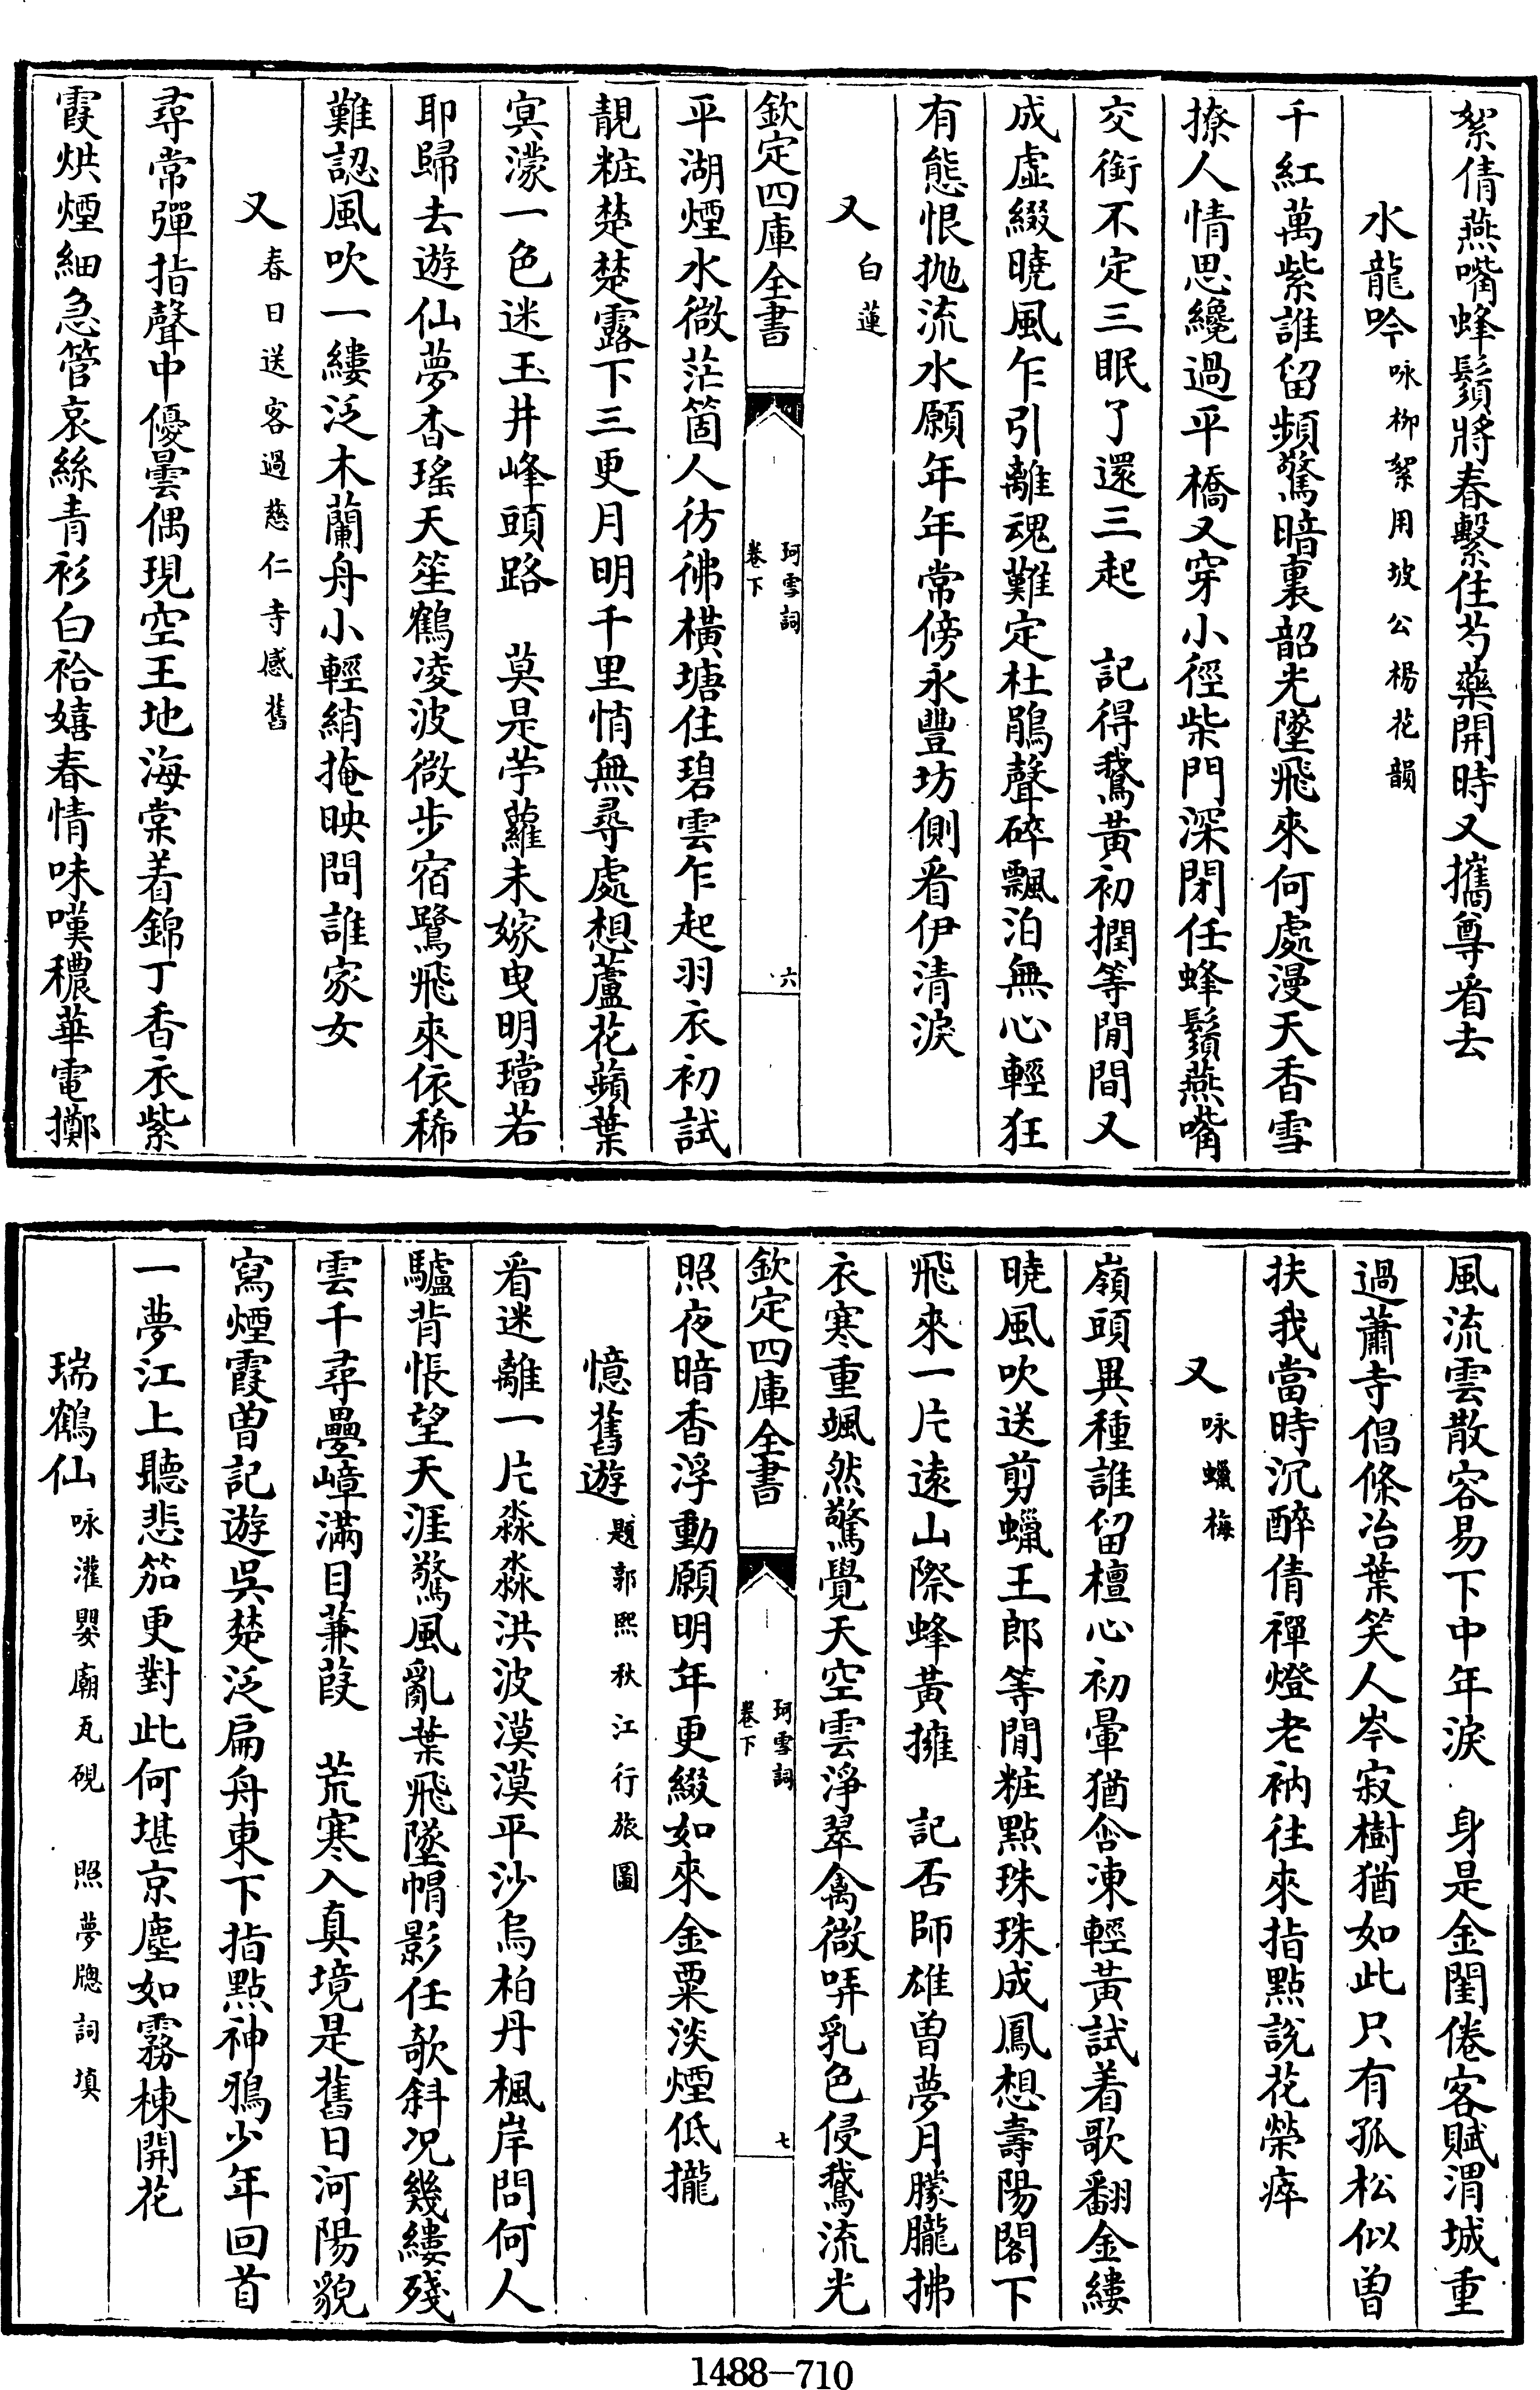 絮倩燕嘴蜂鬚將春繫住芍藥開時又攜尊看去
水龍吟咏栁絮用坡公楊花韻
千紅萬紫誰留頻驚暗裏韶光墜飛來何處漫天香雪
撩人情思纔過平橋又穿小徑柴門深閉任蜂鬚燕嘴
交銜不定三眠了還三起　記得鵞黃初撋等閒間又
成虛綴曉風乍引離魂難定杜鵑聲碎飄泊無心輕狂
有態恨抛流水願年年常傍永豐坊側看伊清淚
又白蓮
欽定四庫全書　珂雪詞卷下　六
平湖煙水微茫箇人彷彿橫塘住碧雲乍起羽衣初試
靚粧楚楚露下三更月明千里悄無尋處想蘆花蘋葉
㝠濛一色迷玉井峰頭路　莫是苧蘿未嫁曳明璫若
耶歸去遊仙夢杳瑤天笙鶴凌波微步宿鷺飛來依稀
難認風吹一縷泛木蘭舟小輕綃掩映問誰家女
又春日送客過慈仁寺感舊
尋常彈指聲中優曇偶現空王地海棠着錦丁香衣紫
霞烘煙細急管哀絲青衫白袷嬉春情味嘆穠華電擲
風流雲散容易下中年淚　身是金閨倦客賦渭城重
過蕭寺倡條冶葉笑人岑寂樹猶如此只有孤松似曾
扶我當時沉醉倩禪燈老衲往來指點說花榮瘁
又咏蠟梅
嶺頭異種誰留檀心初暈猶含凍輕黃試着歌翻金縷
曉風吹送剪蠟王郎等閒粧點珠珠成鳳想壽陽閣下
飛來一片逺山際蜂黃擁　記否師雄曾夢月朦朧拂
衣寒重颯然驚覺天空雲淨翠禽微哢乳色侵鵞流光
欽定四庫全書　珂雪詞卷下　七
照夜暗香浮動願明年更綴如來金粟淡煙低攏
憶舊遊題郭熙秋江行旅圖
看迷離一片淼淼洪波漠漠平沙烏桕丹楓岸問何人
驢背悵望天涯驚風亂葉飛墜帽影任欹斜况幾縷殘
雲千尋疊嶂滿目蒹葭　荒寒入真境是舊日河陽貌
寫煙霞曾記遊吳楚泛扁舟東下指點神鴉少年回首
一夢江上聽悲笳更對此何堪京塵如霧棟開花
瑞鶴仙咏灌嬰廟瓦硯　照夢牕詞填
1488-710